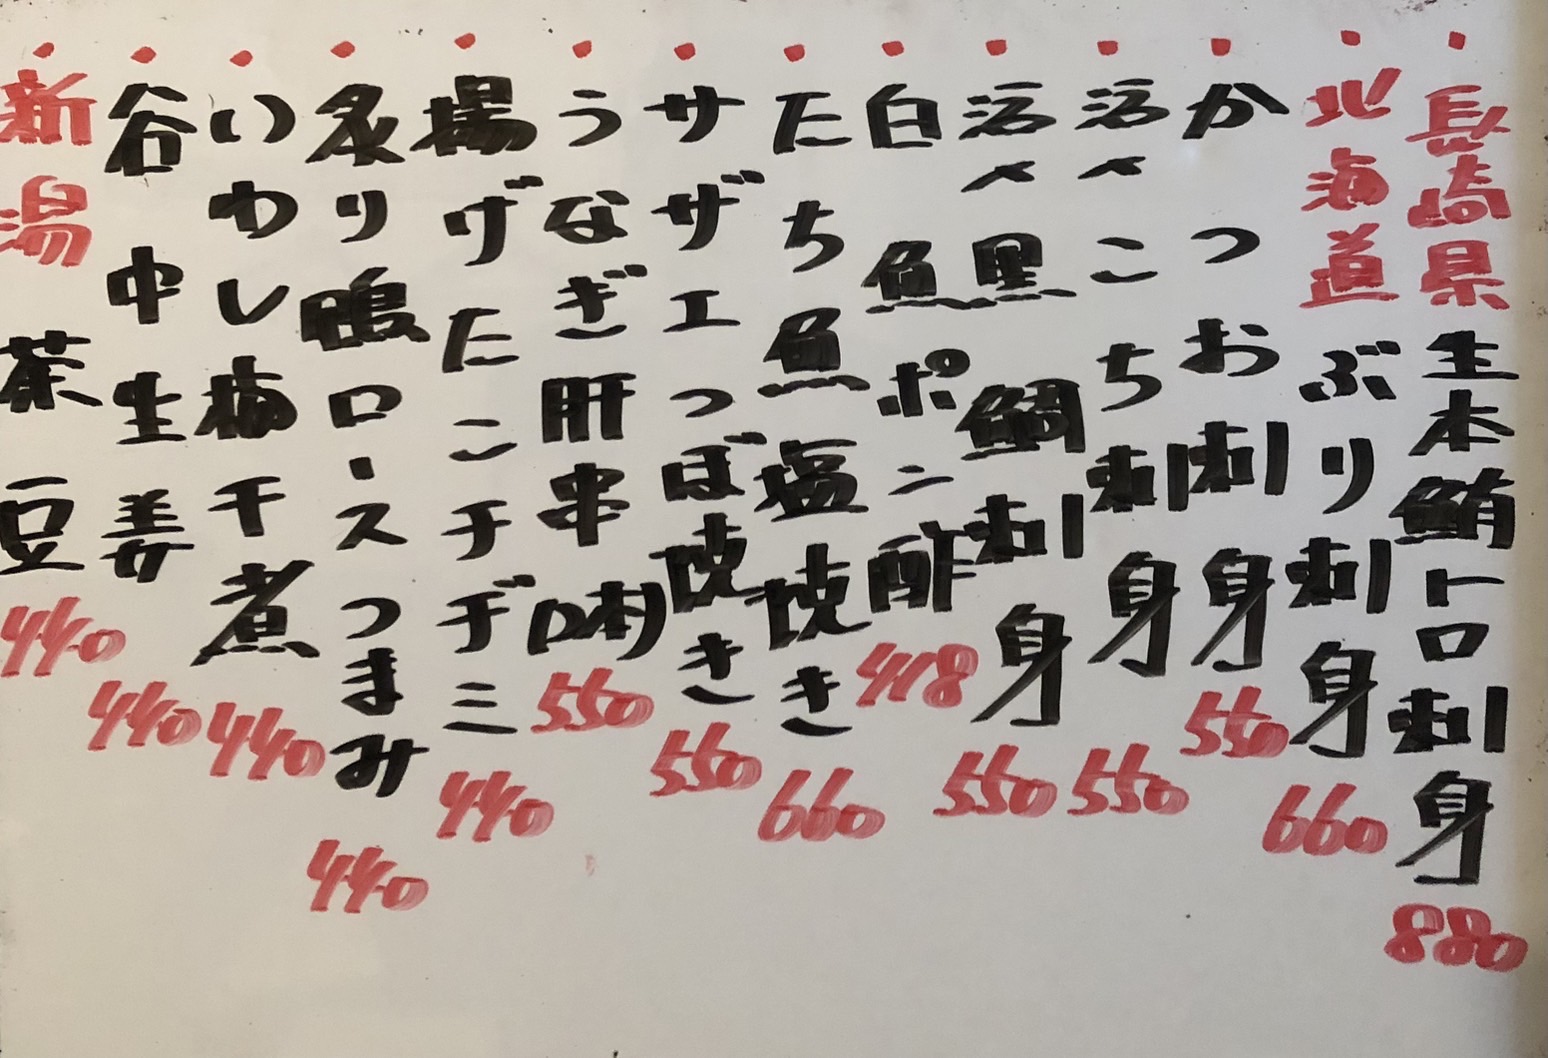 ・長崎県生本鮪トロ刺身 880
・北海道ぶり刺身 660
・かつお刺身 550
・活〆こち刺身 550
・活〆黒鯛刺身 550
・白魚ポン酢 418
・たち魚塩焼き 660
・サザエつぼ焼き 550
・うなぎ肝串(1本) 550
・揚げたこチヂミ 440
・炙り鴨ロースつまみ 440
・いわし梅干煮 440
・谷中生姜 440
・新潟茶豆 440